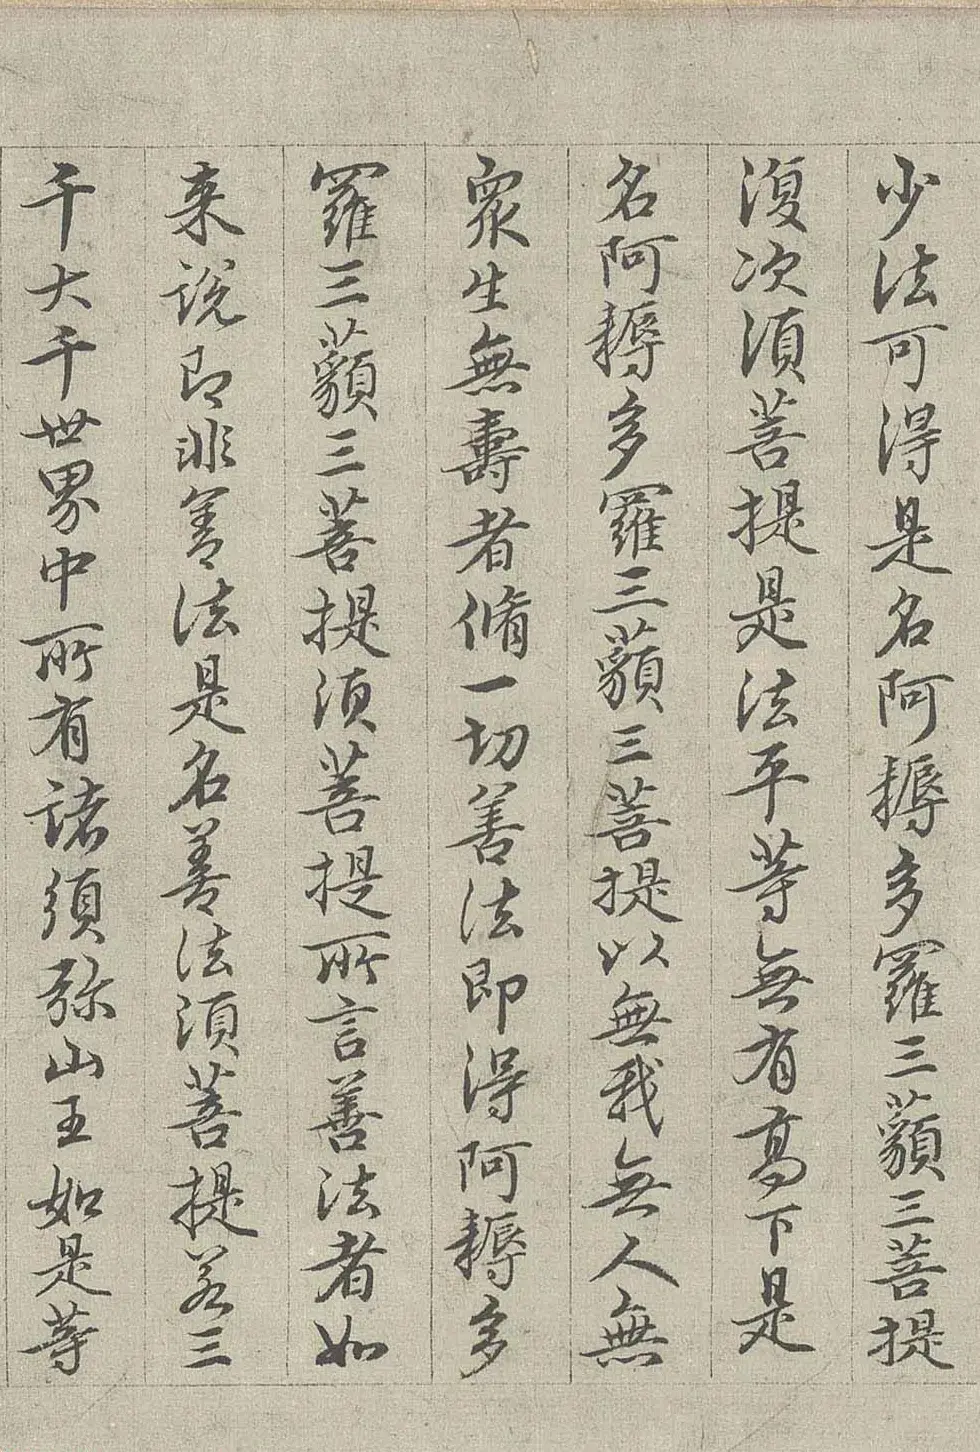 少法可得是名阿耨多羅三藐三菩提
復次須菩提是法平等無有高下是
名阿耨多羅三藐三菩提以無我無人無
眾生無壽者脩一切善法即得阿耨多
羅三藐三菩提須菩提所言善法者如
来說即非善法是名善法須菩提若三
千大千世界中所有諸須弥山王如是等